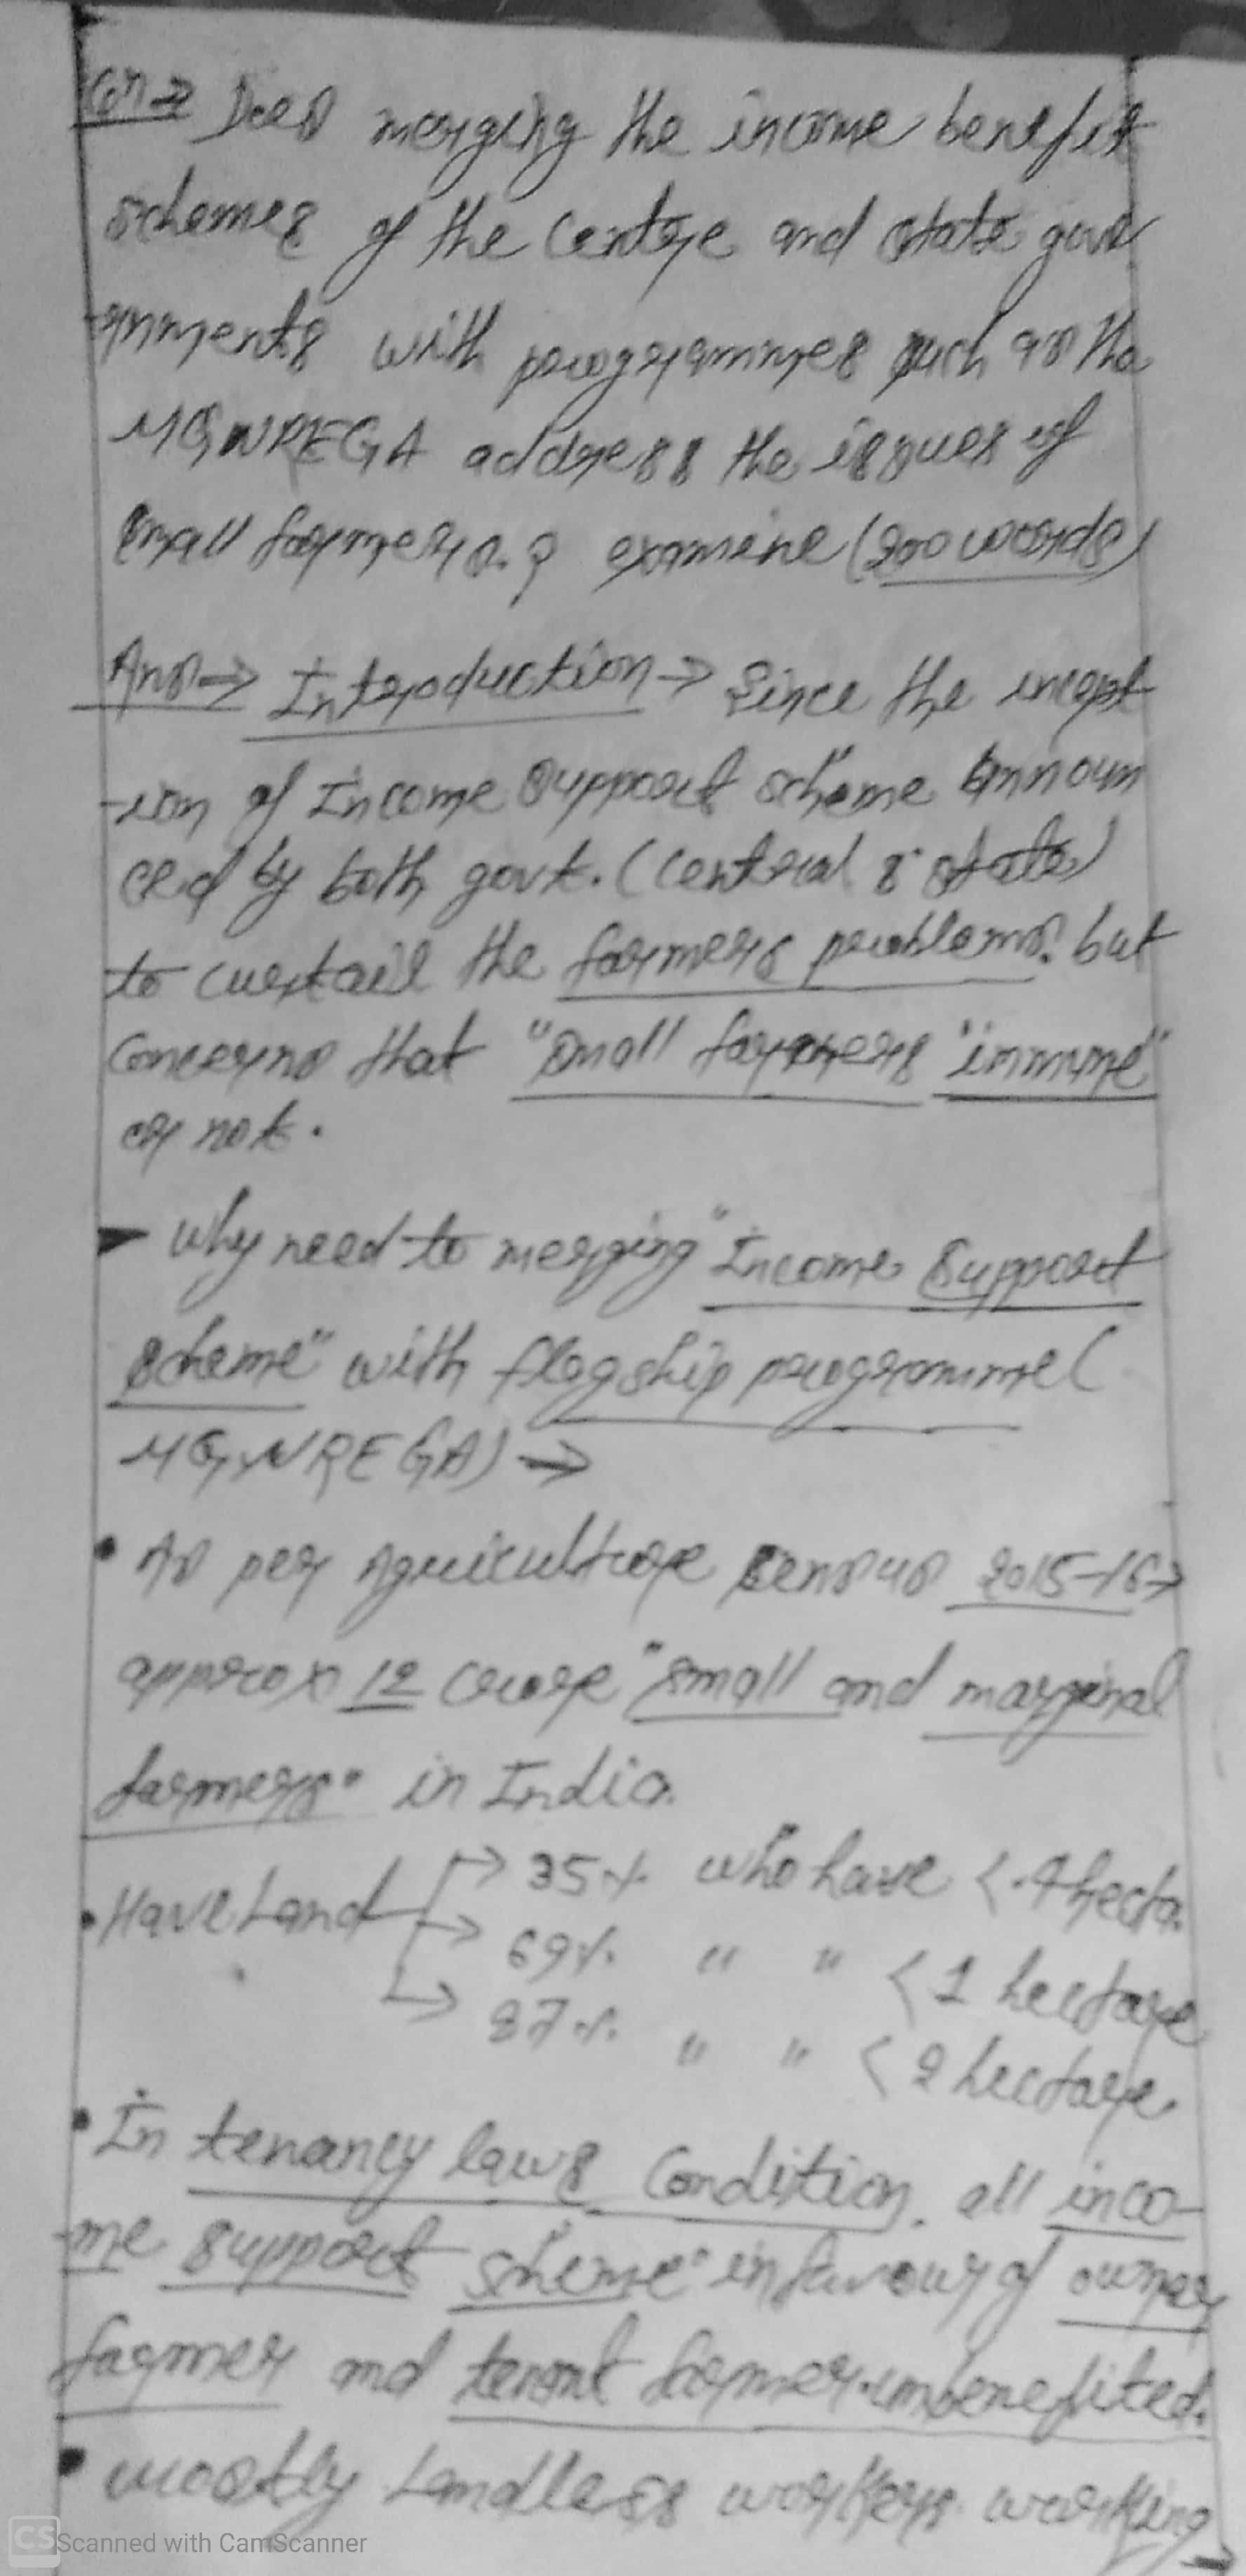 Qn→ Does merging the income benefit
schemes of the Centre and state gove
-rnments with programmes such as the
MGNREGA address the issues of
small farmers.? examine (200 words)
Ans→ Introduction → Since the incept
-ion of Income support scheme" Announ
ced by both govt. (central & state)
to curtail the farmers problems. but
concerns that "small farmers "immune"
or not.
► Why need to merging "Income Support
scheme" with flagship programme (
MGNREGA) →
• As per Agriculture census 2015-16→
approx 12 crore "small and marginal
farmers" in India.
• Have Land → 35% who have < .4 hecta.
→ 69% " " < 1 hectare
→ 87%. " " < 2 hectare
• In tenancy laws Condition, all inco-
-me support scheme" in favour of owner
farmer and tenant farmer unbenefited.
• mostly Landless workers working
CS Scanned with CamScanner